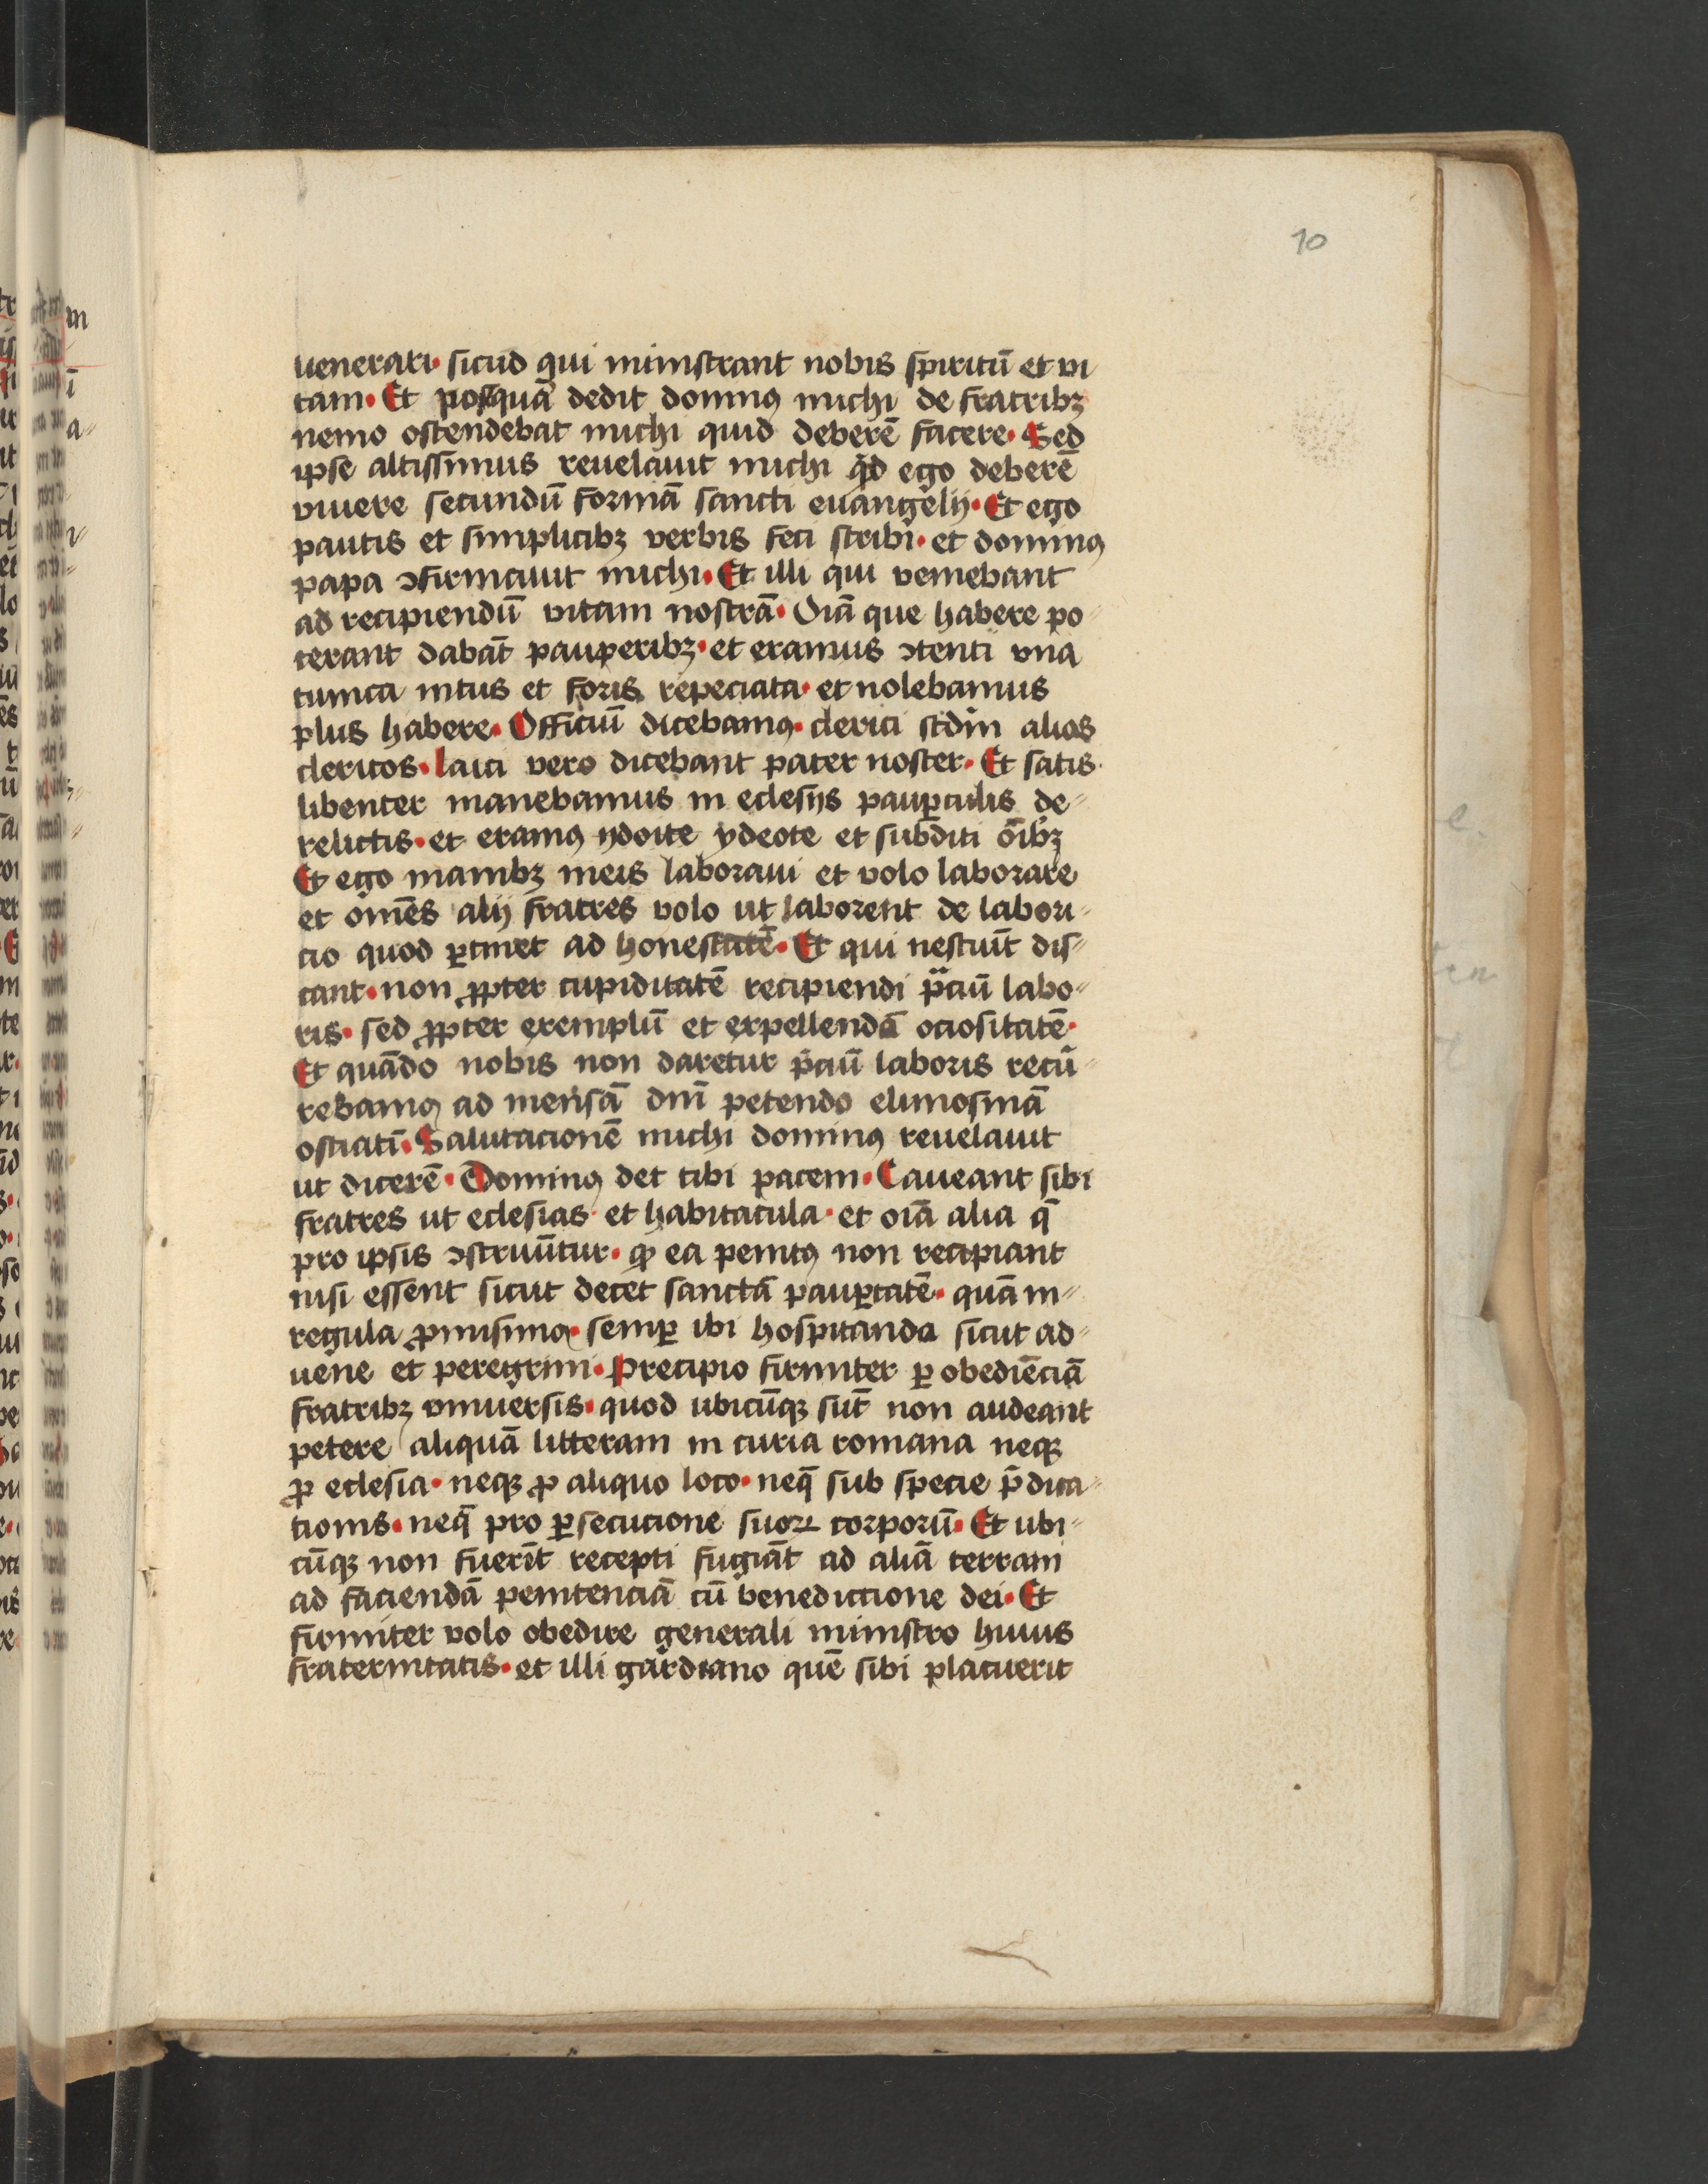 10
uenerari · sicud qui ministrant nobis spiritū et vi
tam · Et posquā dedit dominꝰ michi de fratribꝫ
nemo ostendebat michi quid deberē facere · Sed
ipse altissimus reuelauit michi qd ego deberē
viuere secundū formā sancti euangelij · Et ego
paucis et simplicibꝫ verbis feci scribi · et dominꝰ
papa ↄfirmauit michi · Et illi qui veniebant
ad recipiendū vitam nostrā · Oīā que habere po
terant dabāt pauperibꝫ · et eramus ↄtenti vna
tunica intus et foris repeciata · et nolebamus
plus habere · Officiū dicebamꝰ · clerici scdm̄ alios
clericos · laici vero dicebant pater noster · Et satis
libenter manebamus in eclesijs paupꝑculis de-
relictis · et eramꝰ ydoite ydeote et subditi oībꝫ
Et ego manibꝫ meis laboraui et volo laborare
et om̄es alij fratres volo ut laborent de labori-
cio quod ꝑtinet ad honestatē · Et qui nesciūt dis-
cant · non ꝓpter cupiditatē recipiendi p̄ciū labo-
ris · sed ꝓpter exemplū et expellendā ociositatē ·
Et quādo nobis non daretur p̄ciū laboris recū-
rebamꝰ ad mensā dnī petendo elimosinā
osciatī · Salutacionē michi dominꝰ reuelauit
ut dicerē · Dominꝰ det tibi pacem · Caueant sibi
fratres ut eclesias · et habitacula · et oīā alia q̄
pro ipsis ↄstruūtur · ꝙ ea penitꝰ non recipiant
nisi essent sicut decet sanctā pauꝑtatē · quā in-
regula ꝓmisimꝰ · semꝑ ibi hospitanda sicut ad-
uene et peregrini · Precipio firmiter ꝑ obediēciā
fratribꝫ vniuersis · quod ubicūqꝫ sūt non audeant
petere aliquā litteram in curia romana neqꝫ
ꝓ eclesia · neqꝫ ꝓ aliquo loco · neq̄ sub specie p̄dica-
tionis · neq̄ pro ꝑsecucione suoꝝ corporū · Et ubi-
cūqꝫ non fuerīt recepti fugiāt ad aliā terram
ad faciendā penitenciā cū benedictione dei · Et
firmiter volo obedire generali ministro huius
fraternitatis · et illi gardiano quē sibi placuerit